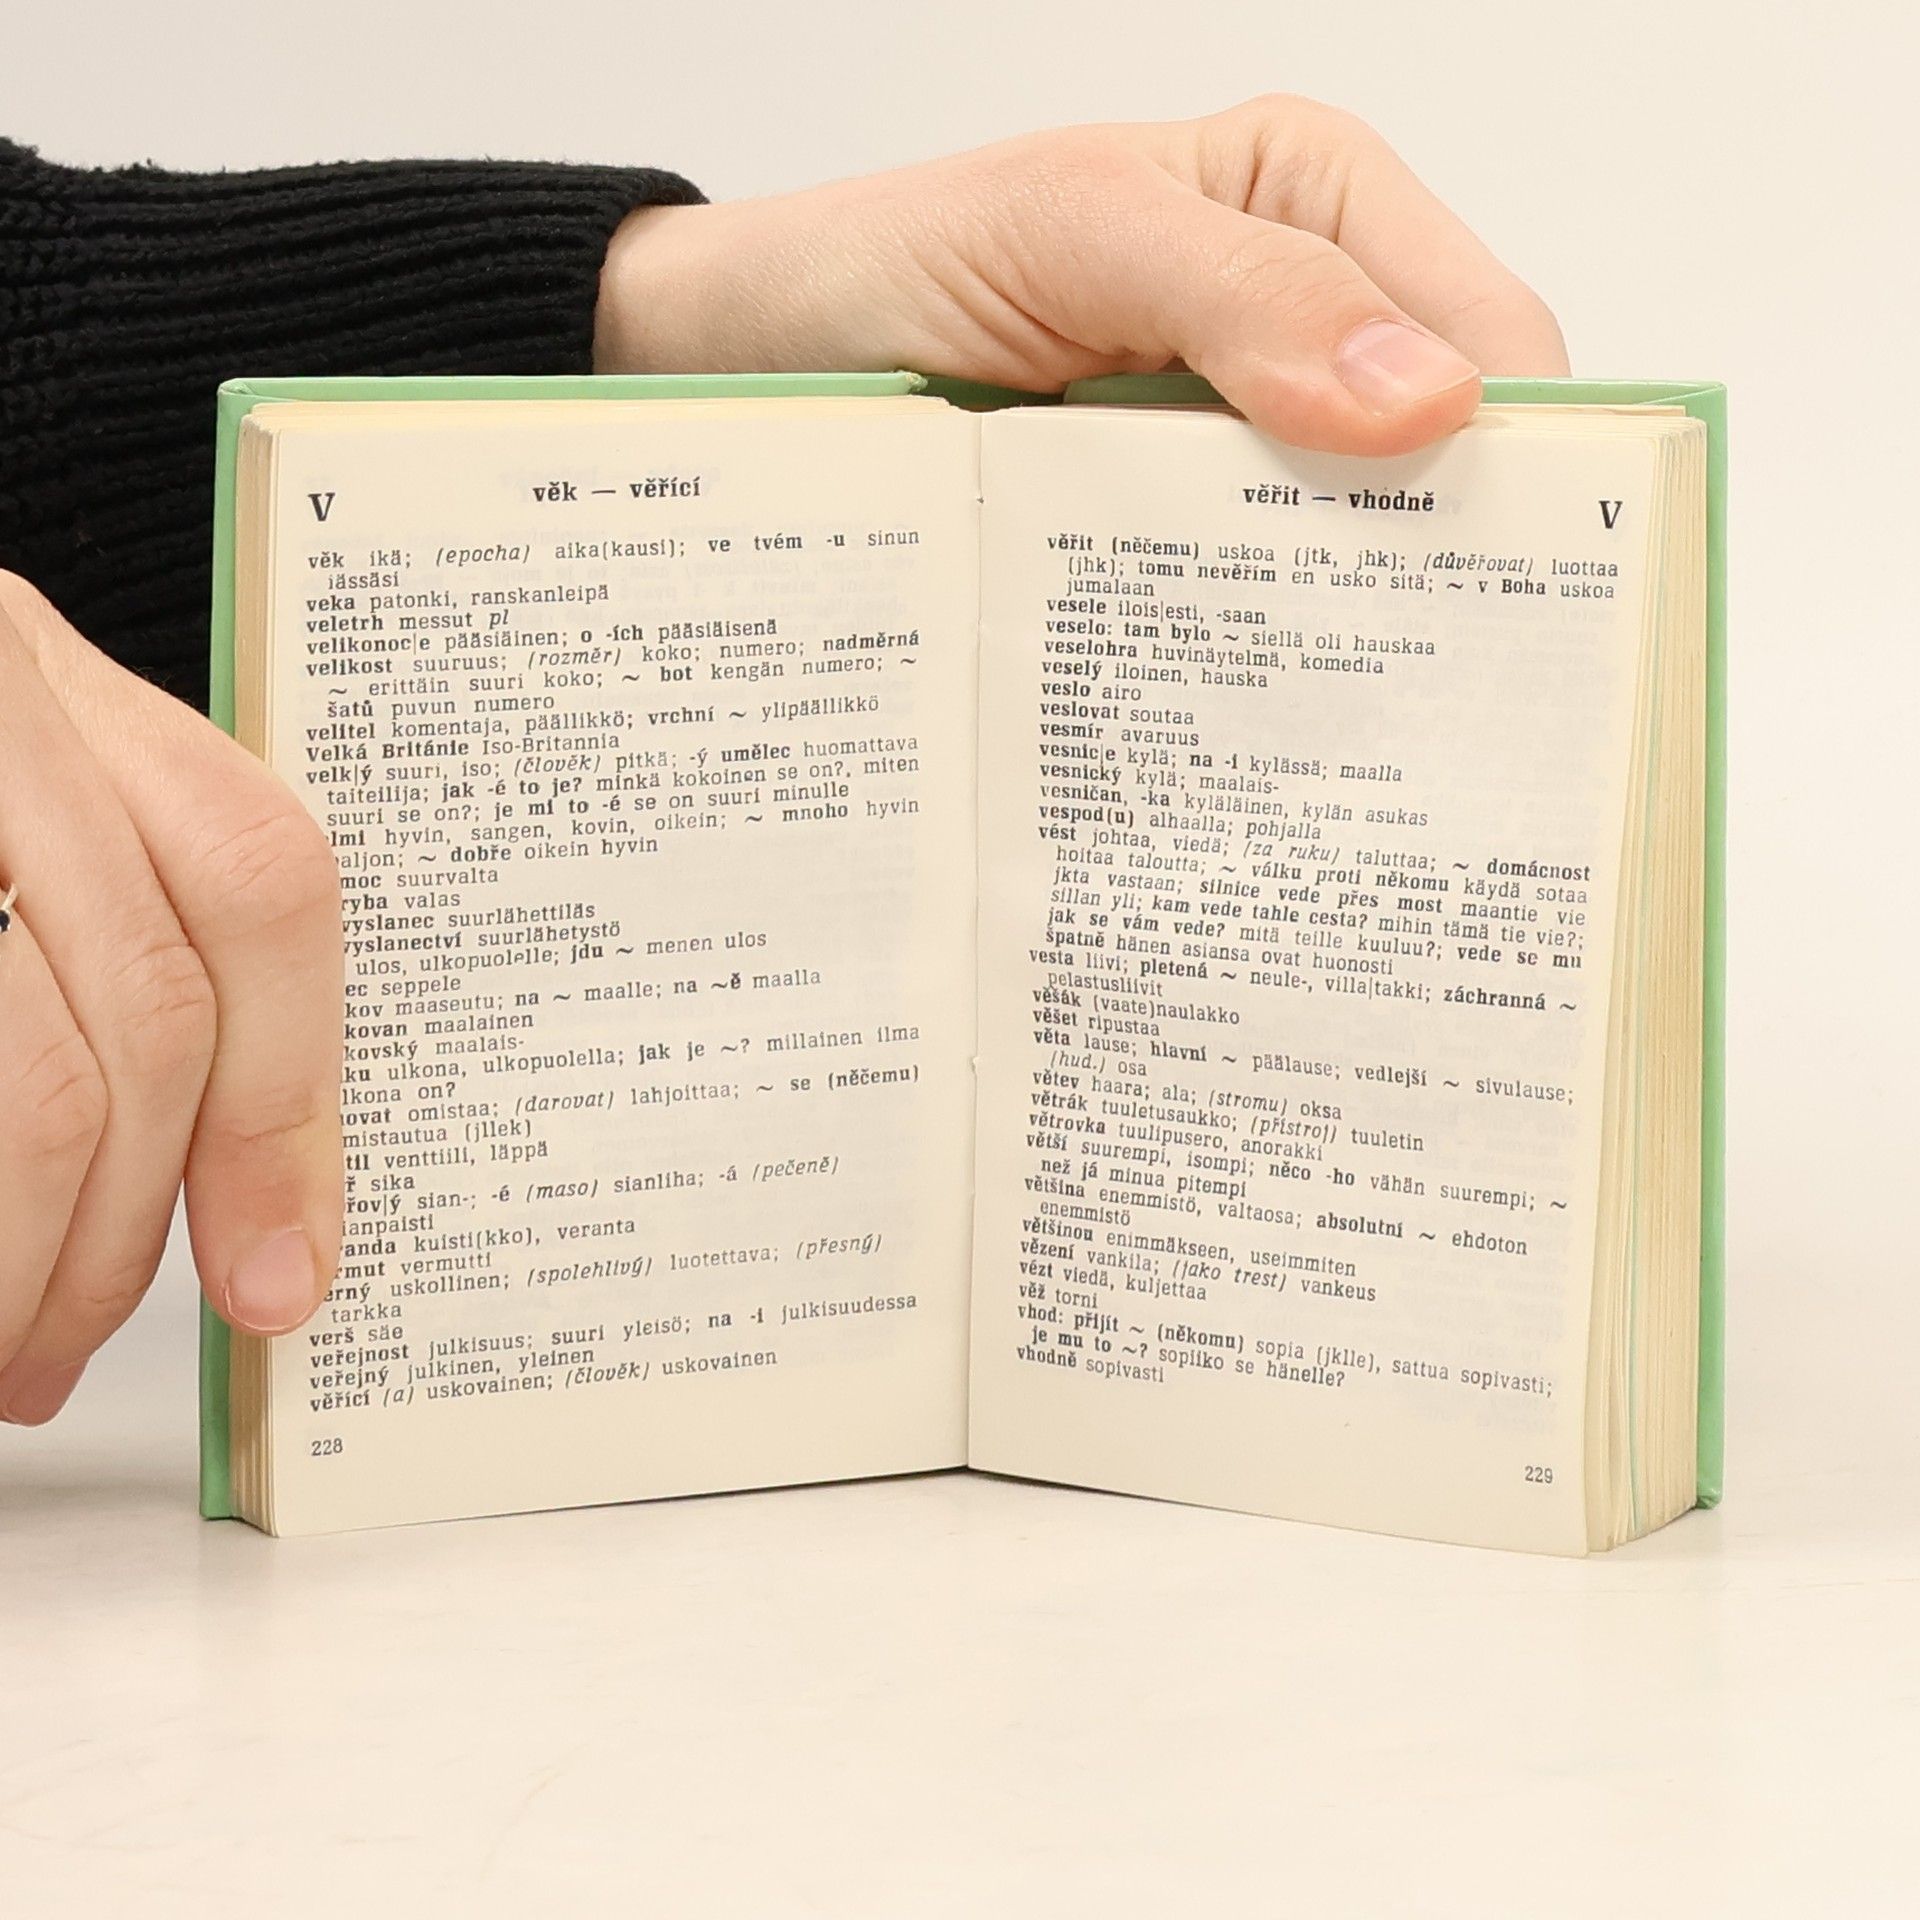 V
věk — věřící
věk ikä; (epocha) aika(kausi); ve tvém -u sinun
iässäsi
veka patonki, ranskanleipä
veletrh messut pl
velikonoc|e pääsiäinen; o -ích pääsiäisenä
velikost suuruus; (rozměr) koko; numero; nadměrná
~ erittäin suuri koko; ~ bot kengän numero; ~
šatů puvun numero
velitel komentaja, päällikkö; vrchní ~ ylipäällikkö
Velká Británie Iso-Britannia
velk|ý suuri, iso; (člověk) pitkä; -ý umělec huomattava
taiteilija; jak -é to je? minkä kokoinen se on?, miten
suuri se on?; je mi to -é se on suuri minulle
lmi hyvin, sangen, kovin, oikein; ~ mnoho hyvin
aljon; ~ dobře oikein hyvin
moc suurvalta
ryba valas
vyslanec suurlähettiläs
vyslanectví suurlähetystö
ulos, ulkopuolelle; jdu ~ menen ulos
ec seppele
kov maaseutu; na ~ maalle; na ~ě maalla
kovan maalainen
kovský maalais-
ku ulkona, ulkopuolella; jak je ~? millainen ilma
lkona on?
novat omistaa; (darovat) lahjoittaa; ~ se (něčemu)
mistautua (jllek)
til venttiili, läppä
ř sika
řov|ý sian-; -é (maso) sianliha; -á (pečeně)
ianpaisti
randa kuisti(kko), veranta
rmut vermutti
ěrný uskollinen; (spolehlivý) luotettava; (přesný)
tarkka
verš säe
veřejnost julkisuus; suuri yleisö; na -i julkisuudessa
veřejný julkinen, yleinen
věřící (a) uskovainen; (člověk) uskovainen
228
věřit — vhodně
V
věřit (něčemu) uskoa (jtk, jhk); (důvěřovat) luottaa
(jhk); tomu nevěřím en usko sitä; ~ v Boha uskoa
jumalaan
vesele ilois|esti, -saan
veselo: tam bylo ~ siellä oli hauskaa
veselohra huvinäytelmä, komedia
veselý iloinen, hauska
veslo airo
veslovat soutaa
vesmír avaruus
vesnic|e kylä; na -i kylässä; maalla
vesnický kylä; maalais-
vesničan, -ka kyläläinen, kylän asukas
vespod(u) alhaalla; pohjalla
vést johtaa, viedä; (za ruku) taluttaa; ~ domácnost
hoitaa taloutta; ~ válku proti někomu käydä sotaa
jkta vastaan; silnice vede přes most maantie vie
sillan yli; kam vede tahle cesta? mihin tämä tie vie?;
jak se vám vede? mitä teille kuuluu?; vede se mu
špatně hänen asiansa ovat huonosti
vesta liivi; pletená ~ neule-, villa|takki; záchranná ~
pelastusliivit
věšák (vaate)naulakko
věšet ripustaa
věta lause; hlavní ~ päälause; vedlejší ~ sivulause;
(hud.) osa
větev haara; ala; (stromu) oksa
větrák tuuletusaukko; (přístroj) tuuletin
větrovka tuulipusero, anorakki
větší suurempi, isompi; něco -ho vähän suurempi; ~
než já minua pitempi
většina enemmistö, valtaosa; absolutní ~ ehdoton
enemmistö
většinou enimmäkseen, useimmiten
vězení vankila; (jako trest) vankeus
vézt viedä, kuljettaa
věž torni
vhod: přijít ~ (někomu) sopia (jklle), sattua sopivasti;
je mu to ~? sopiiko se hänelle?
vhodně sopivasti
229